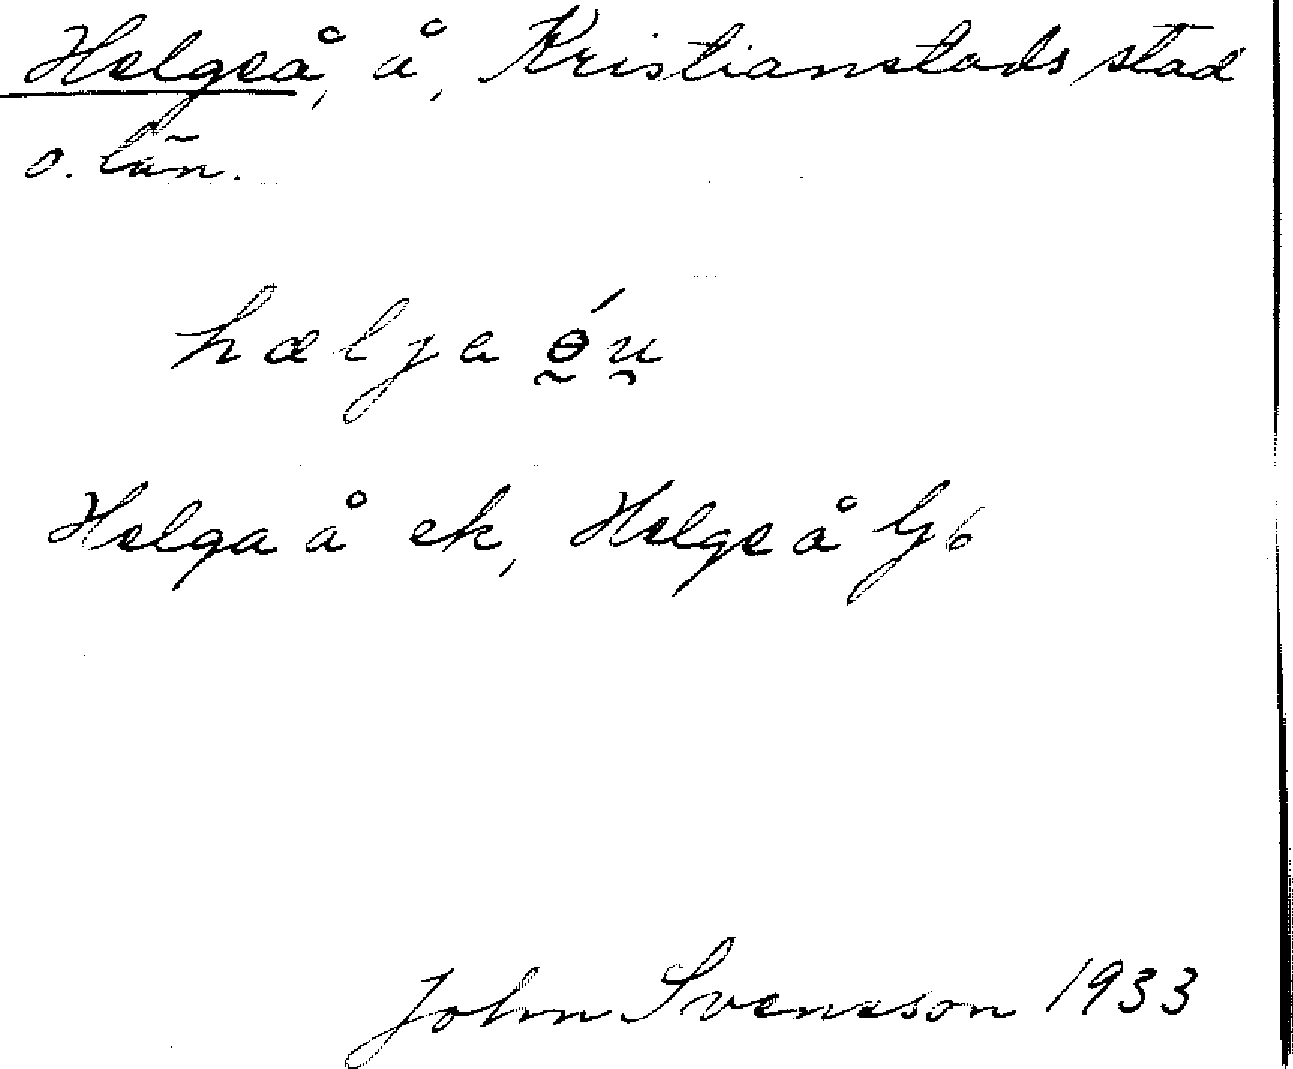 Helgeå, å, Kristianstads stad
o. län.
hælja ɵ́u
Helga å ek, Helge å Gs
John Svensson 1933